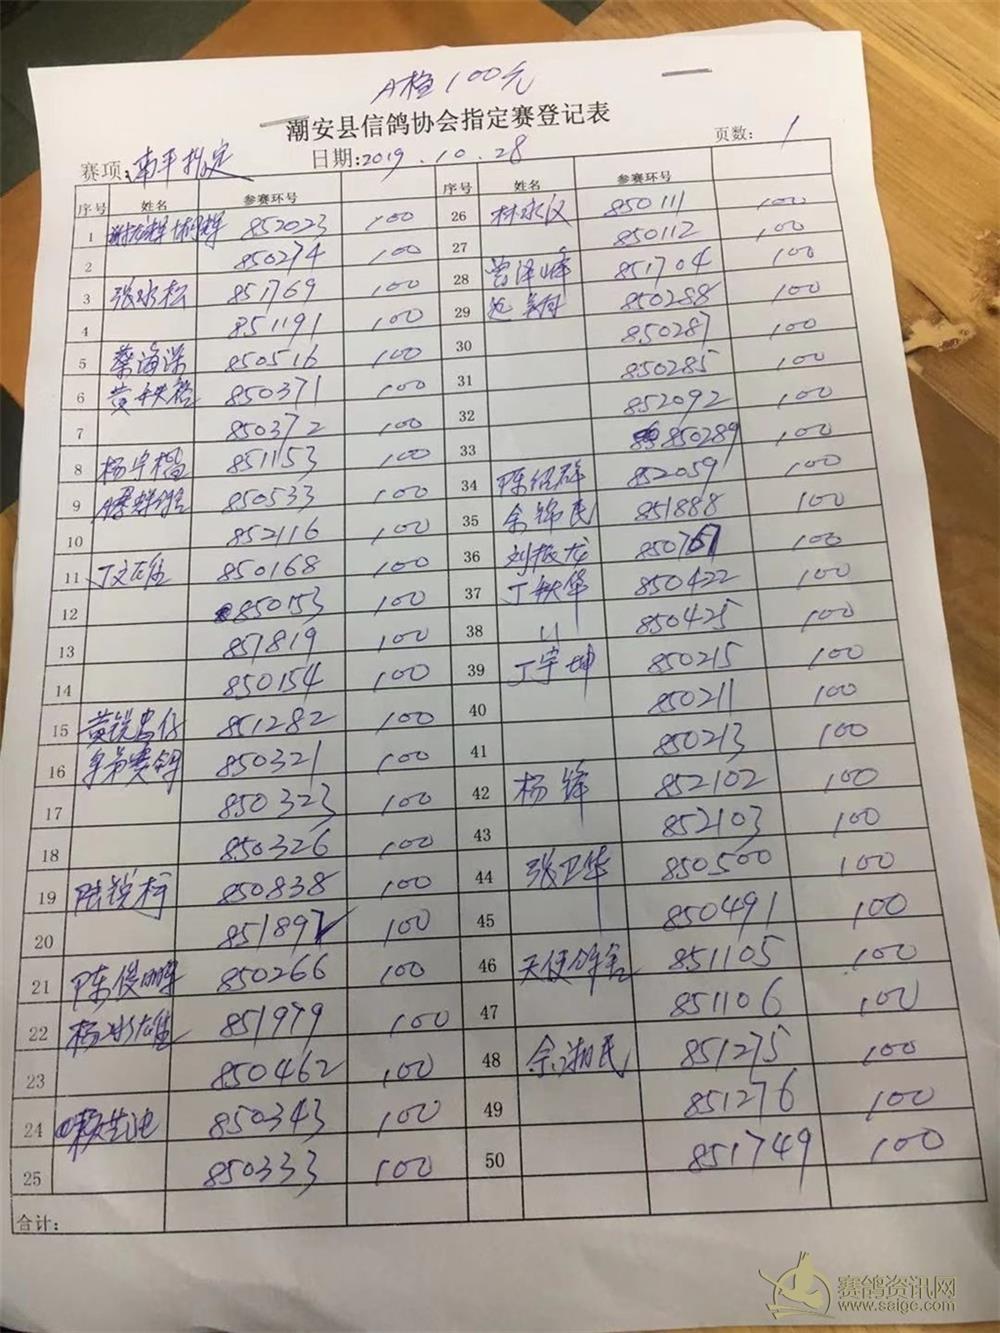 A检 100元
潮安县信鸽协会指定赛登记表
赛项:南平指定 日期:2019.10.28 页数: 1
序号 姓名 参赛环号 序号 姓名 参赛环号
1 852023 100 26 林永汉 850111 100
2 850274 100 27 850112 100
3 张水松 851769 100 28 曾泽峰 851704 100
4 851191 100 29 850288 100
5 蔡海深 850516 100 30 850287 100
6 黄铁 850371 100 31 850285 100
7 850372 100 32 852092 100
8 杨 851153 100 33 850289 100
9 850533 100 34 陈绍群 852059 100
10 852116 100 35 余锦民 851888 100
11 丁文雄 850168 100 36 刘振龙 100
12 850153 100 37 丁铁华 850422 100
13 851819 100 38 〃 850425 100
14 850154 100 39 丁宇坤 850215 100
15 黄锐忠仔 851282 100 40 850211 100
16 赛鸽 850321 100 41 850213 100
17 850323 100 42 杨锋 852102 100
18 850326 100 43 852103 100
19 陆锐 850838 100 44 张卫华 850500 100
20 851897 100 45 850491 100
21 陈俊 850266 100 46 天使鸽舍 851105 100
22 杨 851979 100 47 851106 100
23 850462 100 48 余 民 851275 100
24 850343 100 49 851276 100
25 850333 100 50 851749 100
合计:
赛鸽资讯网
www.saigc.com